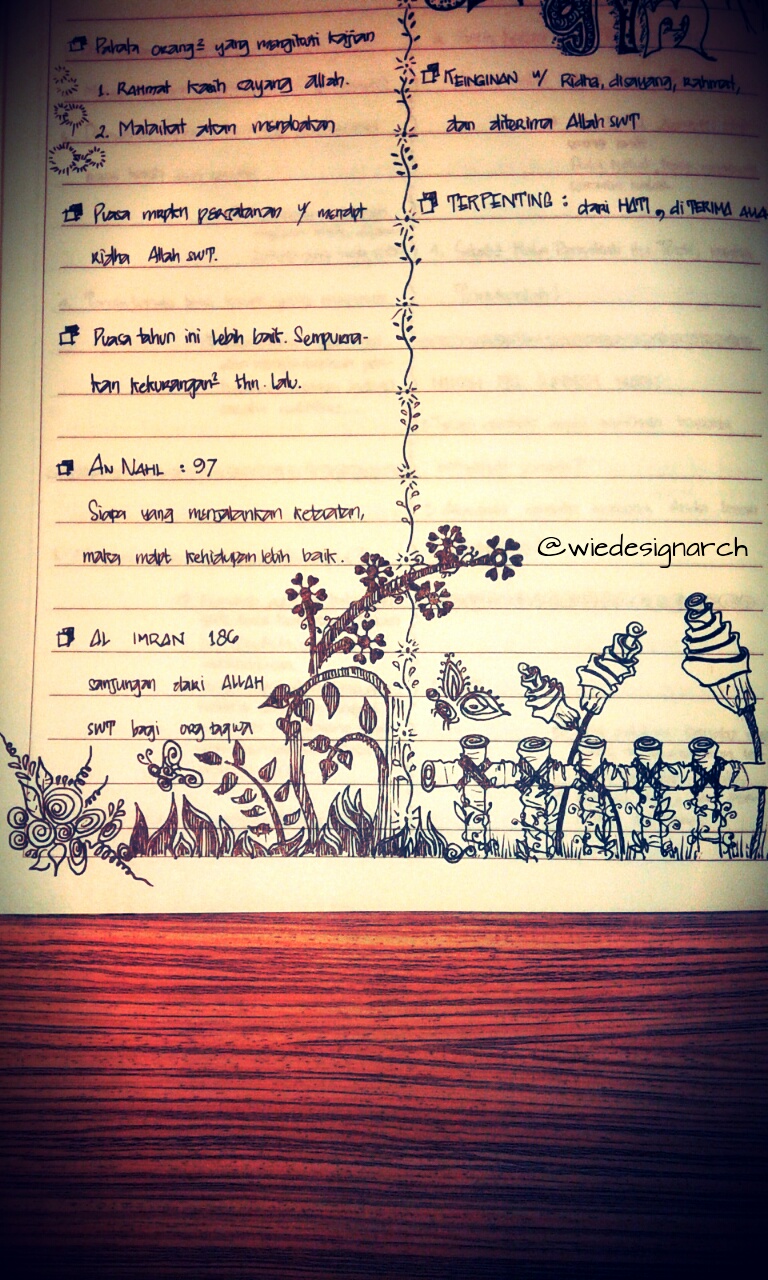 Pahala orang² yang mengikuti kajian
1. Rahmat kasih sayang Allah.
2. Malaikat akan mendoakan
Puasa mrpkn perjalanan u/ mendpt
ridha Allah SWT.
Puasa tahun ini lebih baik. Sempurna-
kan kekurangan² thn. lalu.
AN NAHL : 97
Siapa yang menjalankan ketaatan,
maka mdpt kehidupan lebih baik.
AL IMRAN 186
sanjungan dari ALLAH
SWT bagi org taqwa
KEINGINAN u/ Ridha, disayang, rahmat,
dan diterima Allah SWT
TERPENTING : dari HATI, diTERIMA
@wiedesignarch